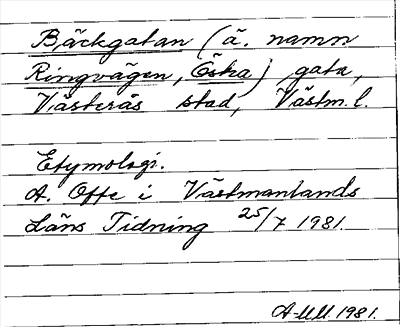 Bäckgatan (ä. namn
Ringvägen, Östra) gata,
Västerås stad, Västm.l.
Etymologi.
A. Offe i Västmanlands
Läns Tidning 25/7 1981.
A-M.M. 1981.